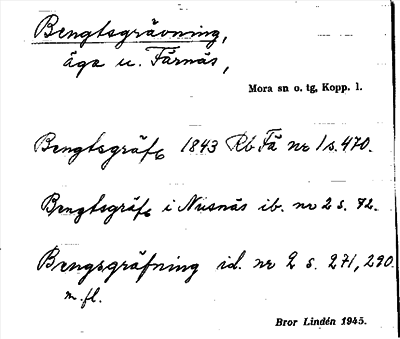 Bengtsgrävning,
äga u. Färnäs,
Mora sn o. tg, Kopp. l.
Bengtsgräfg 1843 Rb Fä nr 1 s. 470.
Bengtsgräfg i Nusnäs ib. nr 2 s. 72.
Bengsgräfning id. nr 2 s. 271, 290.
m. fl.
Bror Lindén 1945.